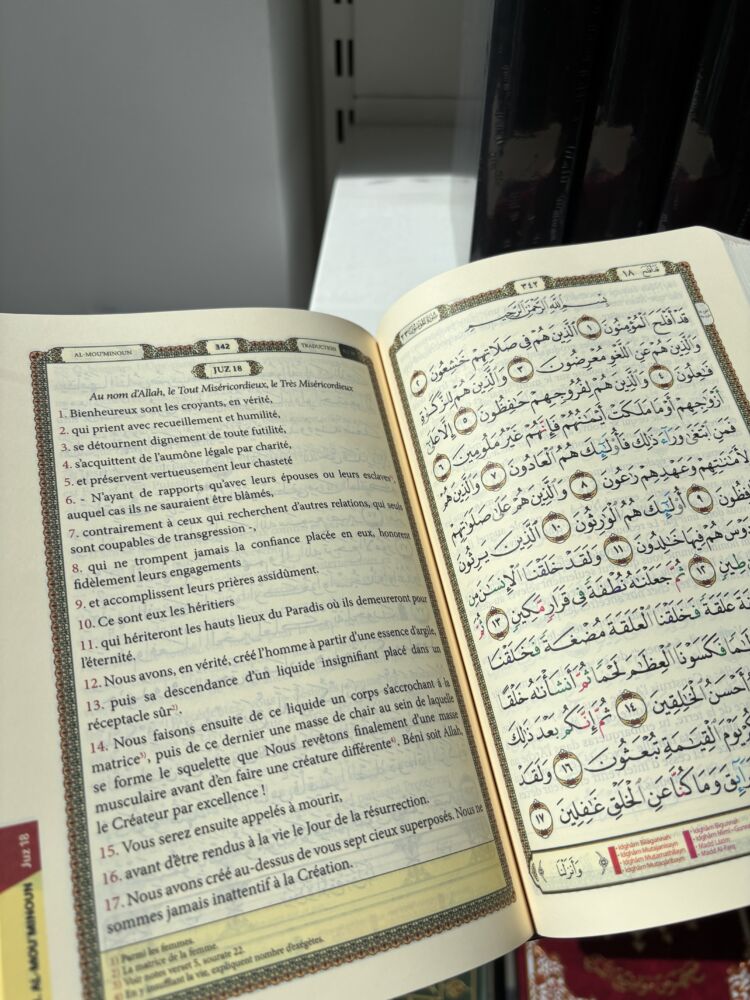 AL-MOU'MINOUN
342
TRADUCTION
JUZ 18
Au nom d'Allah, le Tout Miséricordieux, le Très Miséricordieux
1. Bienheureux sont les croyants, en vérité,
2. qui prient avec recueillement et humilité,
3. se détournent dignement de toute futilité,
4. s'acquittent de l'aumône légale par charité,
5. et préservent vertueusement leur chasteté
6. - N'ayant de rapports qu'avec leurs épouses ou leurs esclaves¹⁾,
auquel cas ils ne sauraient être blâmés,
7. contrairement à ceux qui recherchent d'autres relations, qui seuls
sont coupables de transgression -,
8. qui ne trompent jamais la confiance placée en eux, honorent
fidèlement leurs engagements
9. et accomplissent leurs prières assidûment.
10. Ce sont eux les héritiers
11. qui hériteront les hauts lieux du Paradis où ils demeureront pour
l'éternité.
12. Nous avons, en vérité, créé l'homme à partir d'une essence d'argile,
13. puis sa descendance d'un liquide insignifiant placé dans un
réceptacle sûr²⁾.
14. Nous faisons ensuite de ce liquide un corps s'accrochant à la
matrice³⁾, puis de ce dernier une masse de chair au sein de laquelle
se forme le squelette que Nous revêtons finalement d'une masse
musculaire avant d'en faire une créature différente⁴⁾. Béni soit Allah,
le Créateur par excellence !
15. Vous serez ensuite appelés à mourir,
16. avant d'être rendus à la vie le Jour de la résurrection.
17. Nous avons créé au-dessus de vous sept cieux superposés. Nous ne
sommes jamais inattentif à la Création.
1) Parmi les femmes.
2) La matrice de la femme.
3) Voir notes verset 5, sourate 22.
4) En y insufflant la vie, expliquent nombre d'exégètes.
Juz 18
AL-MOU'MINOUN
٣٤٢
قد أفلح ١٨
بِسْمِ اللَّهِ الرَّحْمَٰنِ الرَّحِيمِ
قَدْ أَفْلَحَ الْمُؤْمِنُونَ ١ الَّذِينَ هُمْ فِي صَلَاتِهِمْ خَاشِعُونَ ٢
وَالَّذِينَ هُمْ عَنِ اللَّغْوِ مُعْرِضُونَ ٣ وَالَّذِينَ هُمْ لِلزَّكَوٰةِ
فَاعِلُونَ ٤ وَالَّذِينَ هُمْ لِفُرُوجِهِمْ حَافِظُونَ ٥ إِلَّا عَلَىٰ
أَزْوَاجِهِمْ أَوْ مَا مَلَكَتْ أَيْمَانُهُمْ فَإِنَّهُمْ غَيْرُ مَلُومِينَ ٦
فَمَنِ ابْتَغَىٰ وَرَاءَ ذَٰلِكَ فَأُولَٰئِكَ هُمُ الْعَادُونَ ٧ وَالَّذِينَ هُمْ
لِأَمَانَاتِهِمْ وَعَهْدِهِمْ رَاعُونَ ٨ وَالَّذِينَ هُمْ عَلَىٰ صَلَوَاتِهِمْ
يُحَافِظُونَ ٩ أُولَٰئِكَ هُمُ الْوَارِثُونَ ١٠ الَّذِينَ يَرِثُونَ
الْفِرْدَوْسَ هُمْ فِيهَا خَالِدُونَ ١١ وَلَقَدْ خَلَقْنَا الْإِنسَانَ مِن
طِينٍ ١٢ ثُمَّ جَعَلْنَاهُ نُطْفَةً فِي قَرَارٍ مَّكِينٍ ١٣ ثُمَّ
عَلَقَةً فَخَلَقْنَا الْعَلَقَةَ مُضْغَةً فَخَلَقْنَا
فَكَسَوْنَا الْعِظَامَ لَحْمًا ثُمَّ أَنشَأْنَاهُ خَلْقًا
أَحْسَنُ الْخَالِقِينَ ١٤ ثُمَّ إِنَّكُم بَعْدَ ذَٰلِكَ
يَوْمَ الْقِيَامَةِ تُبْعَثُونَ ١٦ وَلَقَدْ
وَمَا كُنَّا عَنِ الْخَلْقِ غَافِلِينَ ١٧
وَأَنزَلْنَا
• Idghâm Bilâgunnah
• Idghâm Mutajanisayn
• Idghâm Mutamathilayn
• Idghâm Mutaqâribayn
• Idghâm Bigunnah
• Madd Lâzim
• Madd Al-Farq